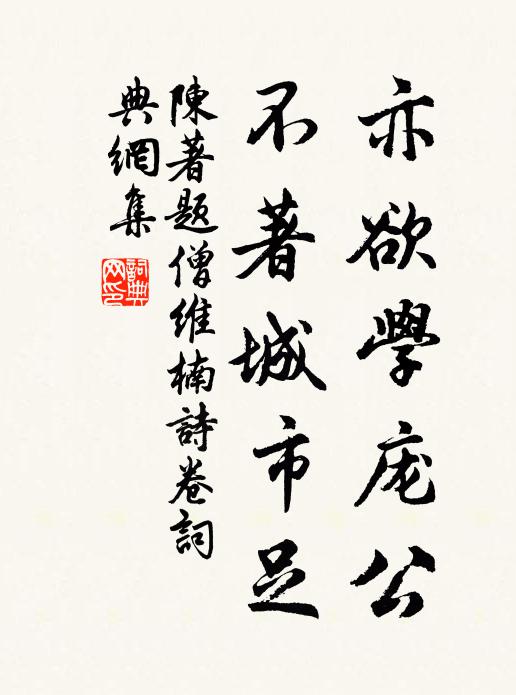 亦欲學庞公
不著城市足
陳著題僧维楠詩卷詞
典網集
詞典
网印